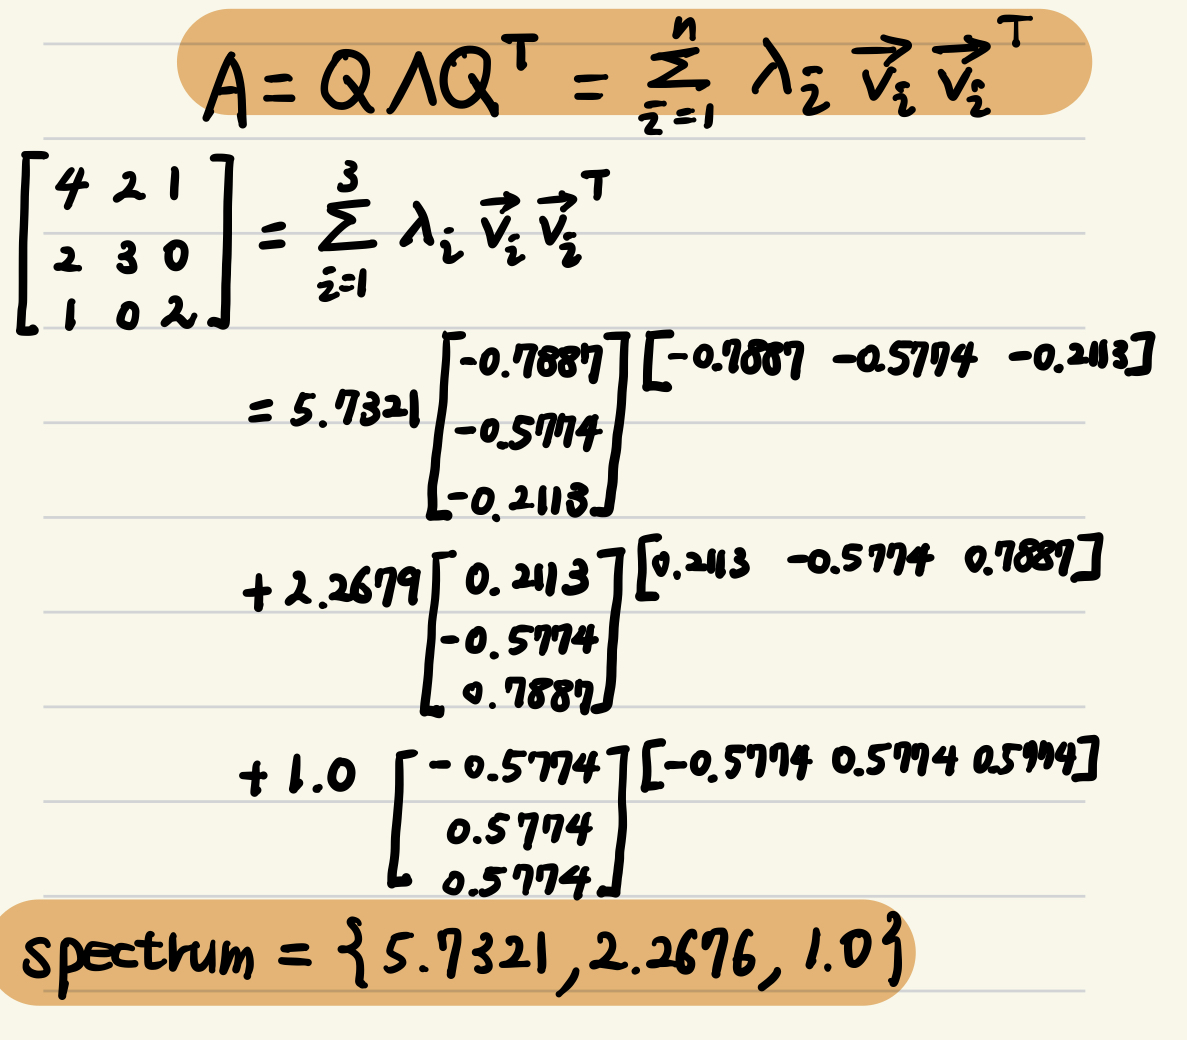 A = QΛQ^T = Σ_{i=1}^{n} λ_i v⃗_i v⃗_i^T
[4 2 1; 2 3 0; 1 0 2] = Σ_{i=1}^{3} λ_i v⃗_i v⃗_i^T
= 5.7321 [-0.7887; -0.5774; -0.2113] [-0.7887 -0.5774 -0.2113]
+ 2.2679 [0.2113; -0.5774; 0.7887] [0.2113 -0.5774 0.7887]
+ 1.0 [-0.5774; 0.5774; 0.5774] [-0.5774 0.5774 0.5774]
spectrum = {5.7321, 2.2676, 1.0}